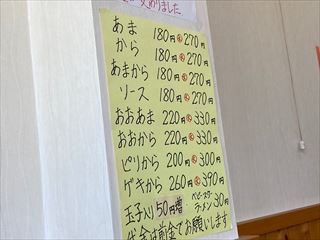 変わりました
あま 180円 大 270円
から 180円 大 270円
あまから 180円 大 270円
ソース 180円 大 270円
おおあま 220円 大 330円
おおから 220円 大 330円
ピリから 200円 大 300円
ゲキから 260円 大 390円
玉子入り 50円増・ベビースターラーメン 30円
代金は前金でお願いします